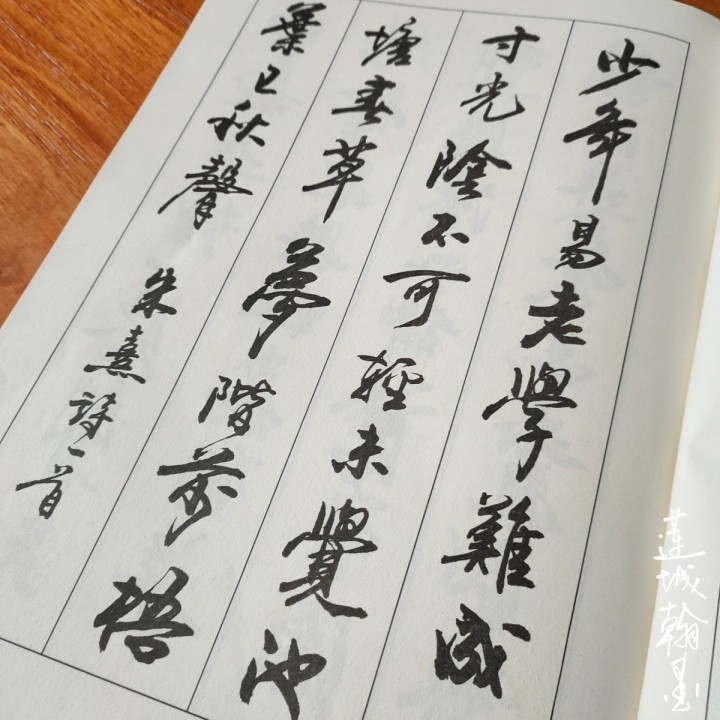 少年易老學難成
寸光陰不可輕未覺池
塘春草夢階前梧
葉已秋聲
朱熹詩一首
蓮城翰墨